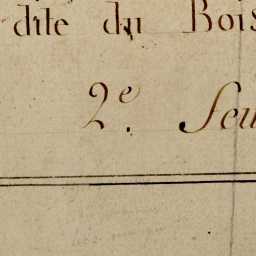 dite du Bois
2e. Feu